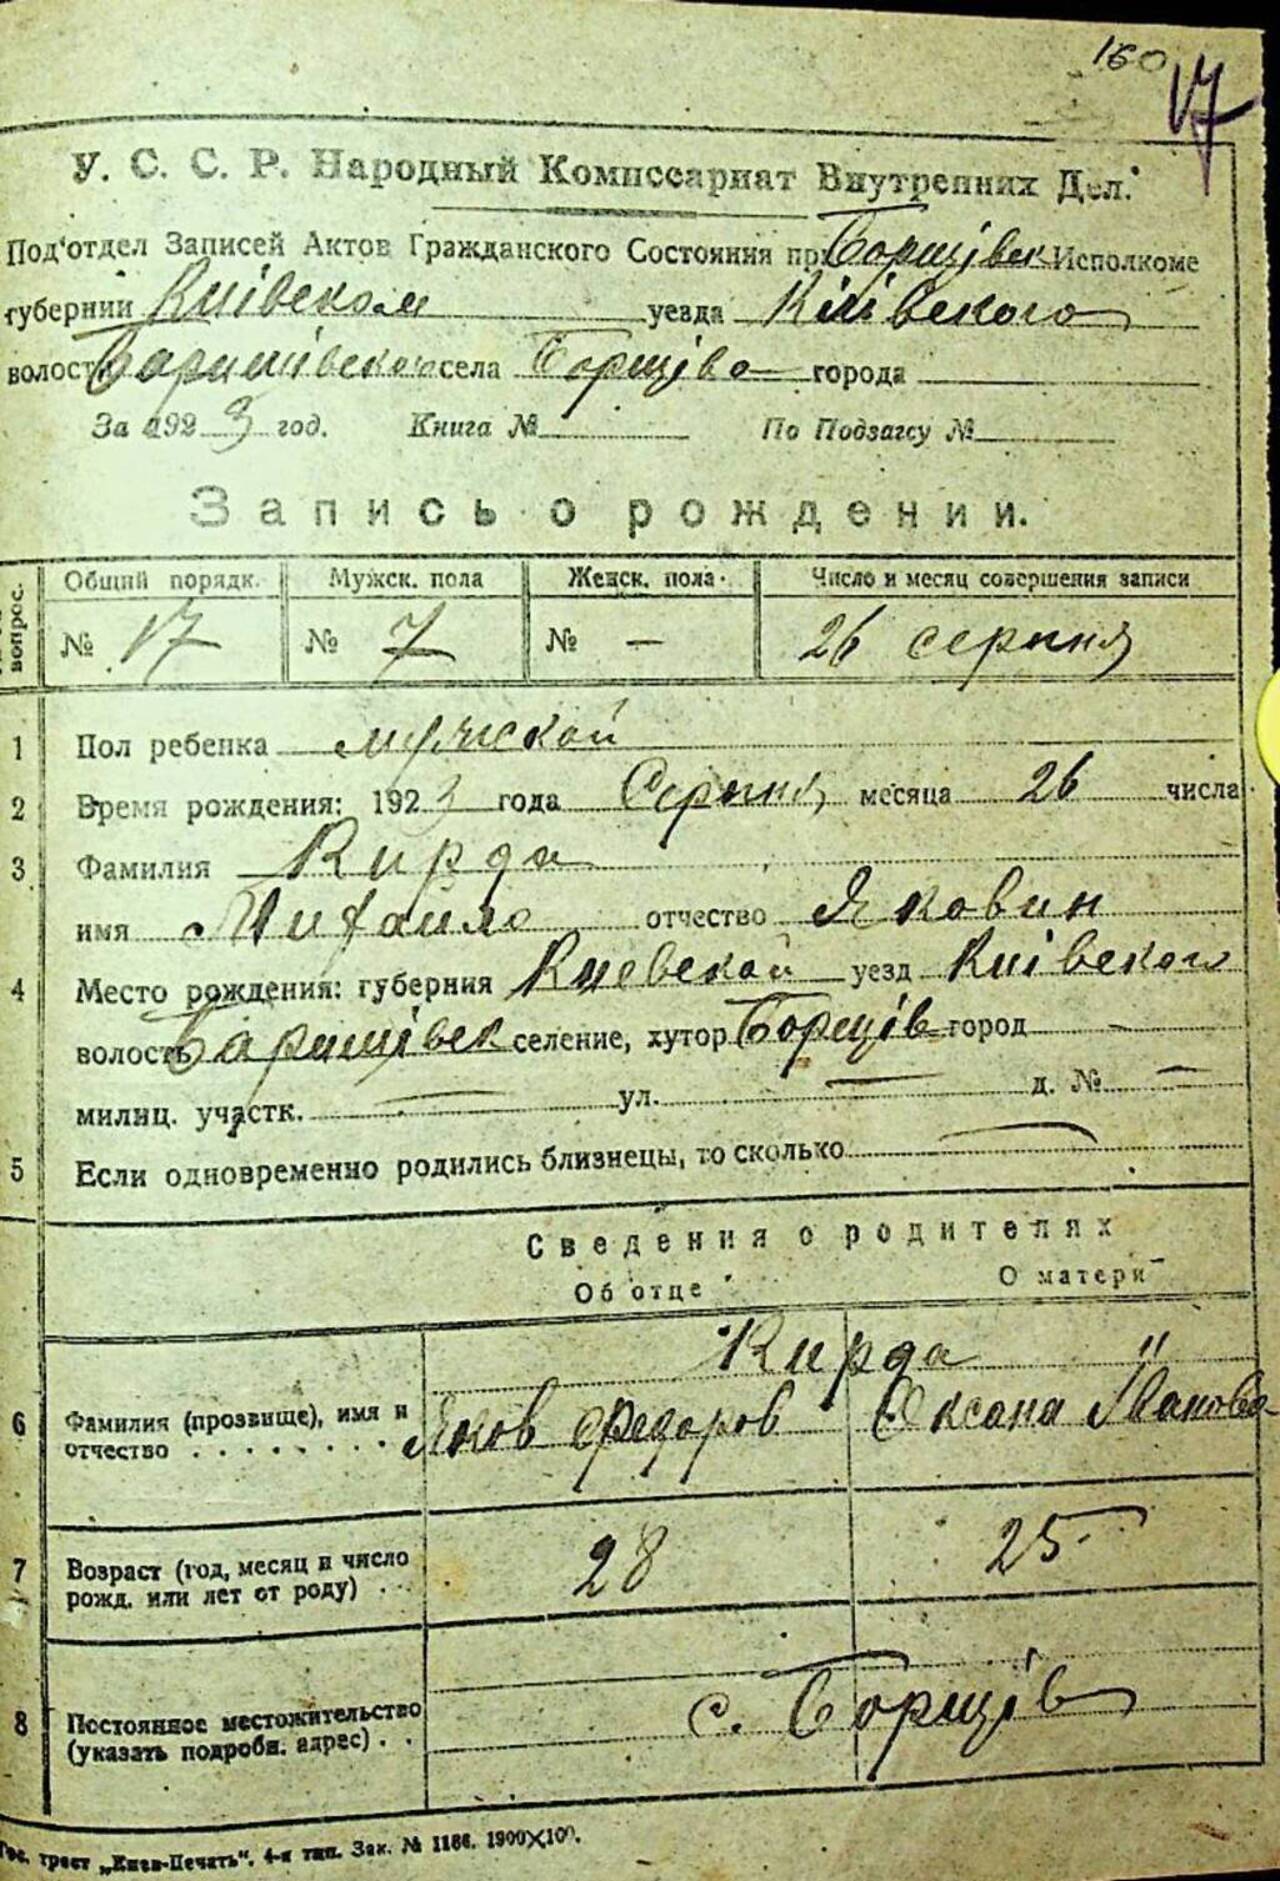 160
17
У. С. С. Р. Народный Комиссариат Внутренних Дел.
Под'отдел Записей Актов Гражданского Состояния при Борщівск Исполкоме
губернии Київском уезда Київського
волост Баришівского села Борщіво города
За 1923 год. Книга № По Подзагсу №
Запись о рождении.
вопрос. Общий порядк. Мужск. пола Женск. пола Число и месяц совершения записи
№ 17 № 7 № — 26 серпня
1 Пол ребенка мужской
2 Время рождения: 1923 года Серпня месяца 26 числа
3 Фамилия Кирда
имя Михайло отчество Яковин
4 Место рождения: губерния Киевской уезд Київского
волость Баришівск селение, хутор Борщів город —
милиц. участк. — ул. — д. № —
5 Если одновременно родились близнецы, то сколько —
Сведения о родителях
Об отце О матери
Кирда "
6 Фамилия (прозвище), имя и отчество . . . . . . . . Яков Федоров Оксана Іванова
7 Возраст (год, месяц и число рожд. или лет от роду) . . . 28 25
8 Постоянное местожительство (указать подробн. адрес) . . с. Борщів
Гос. трест „Киев-Печать". 4-я тип. Зак. № 1186. 1900×100.